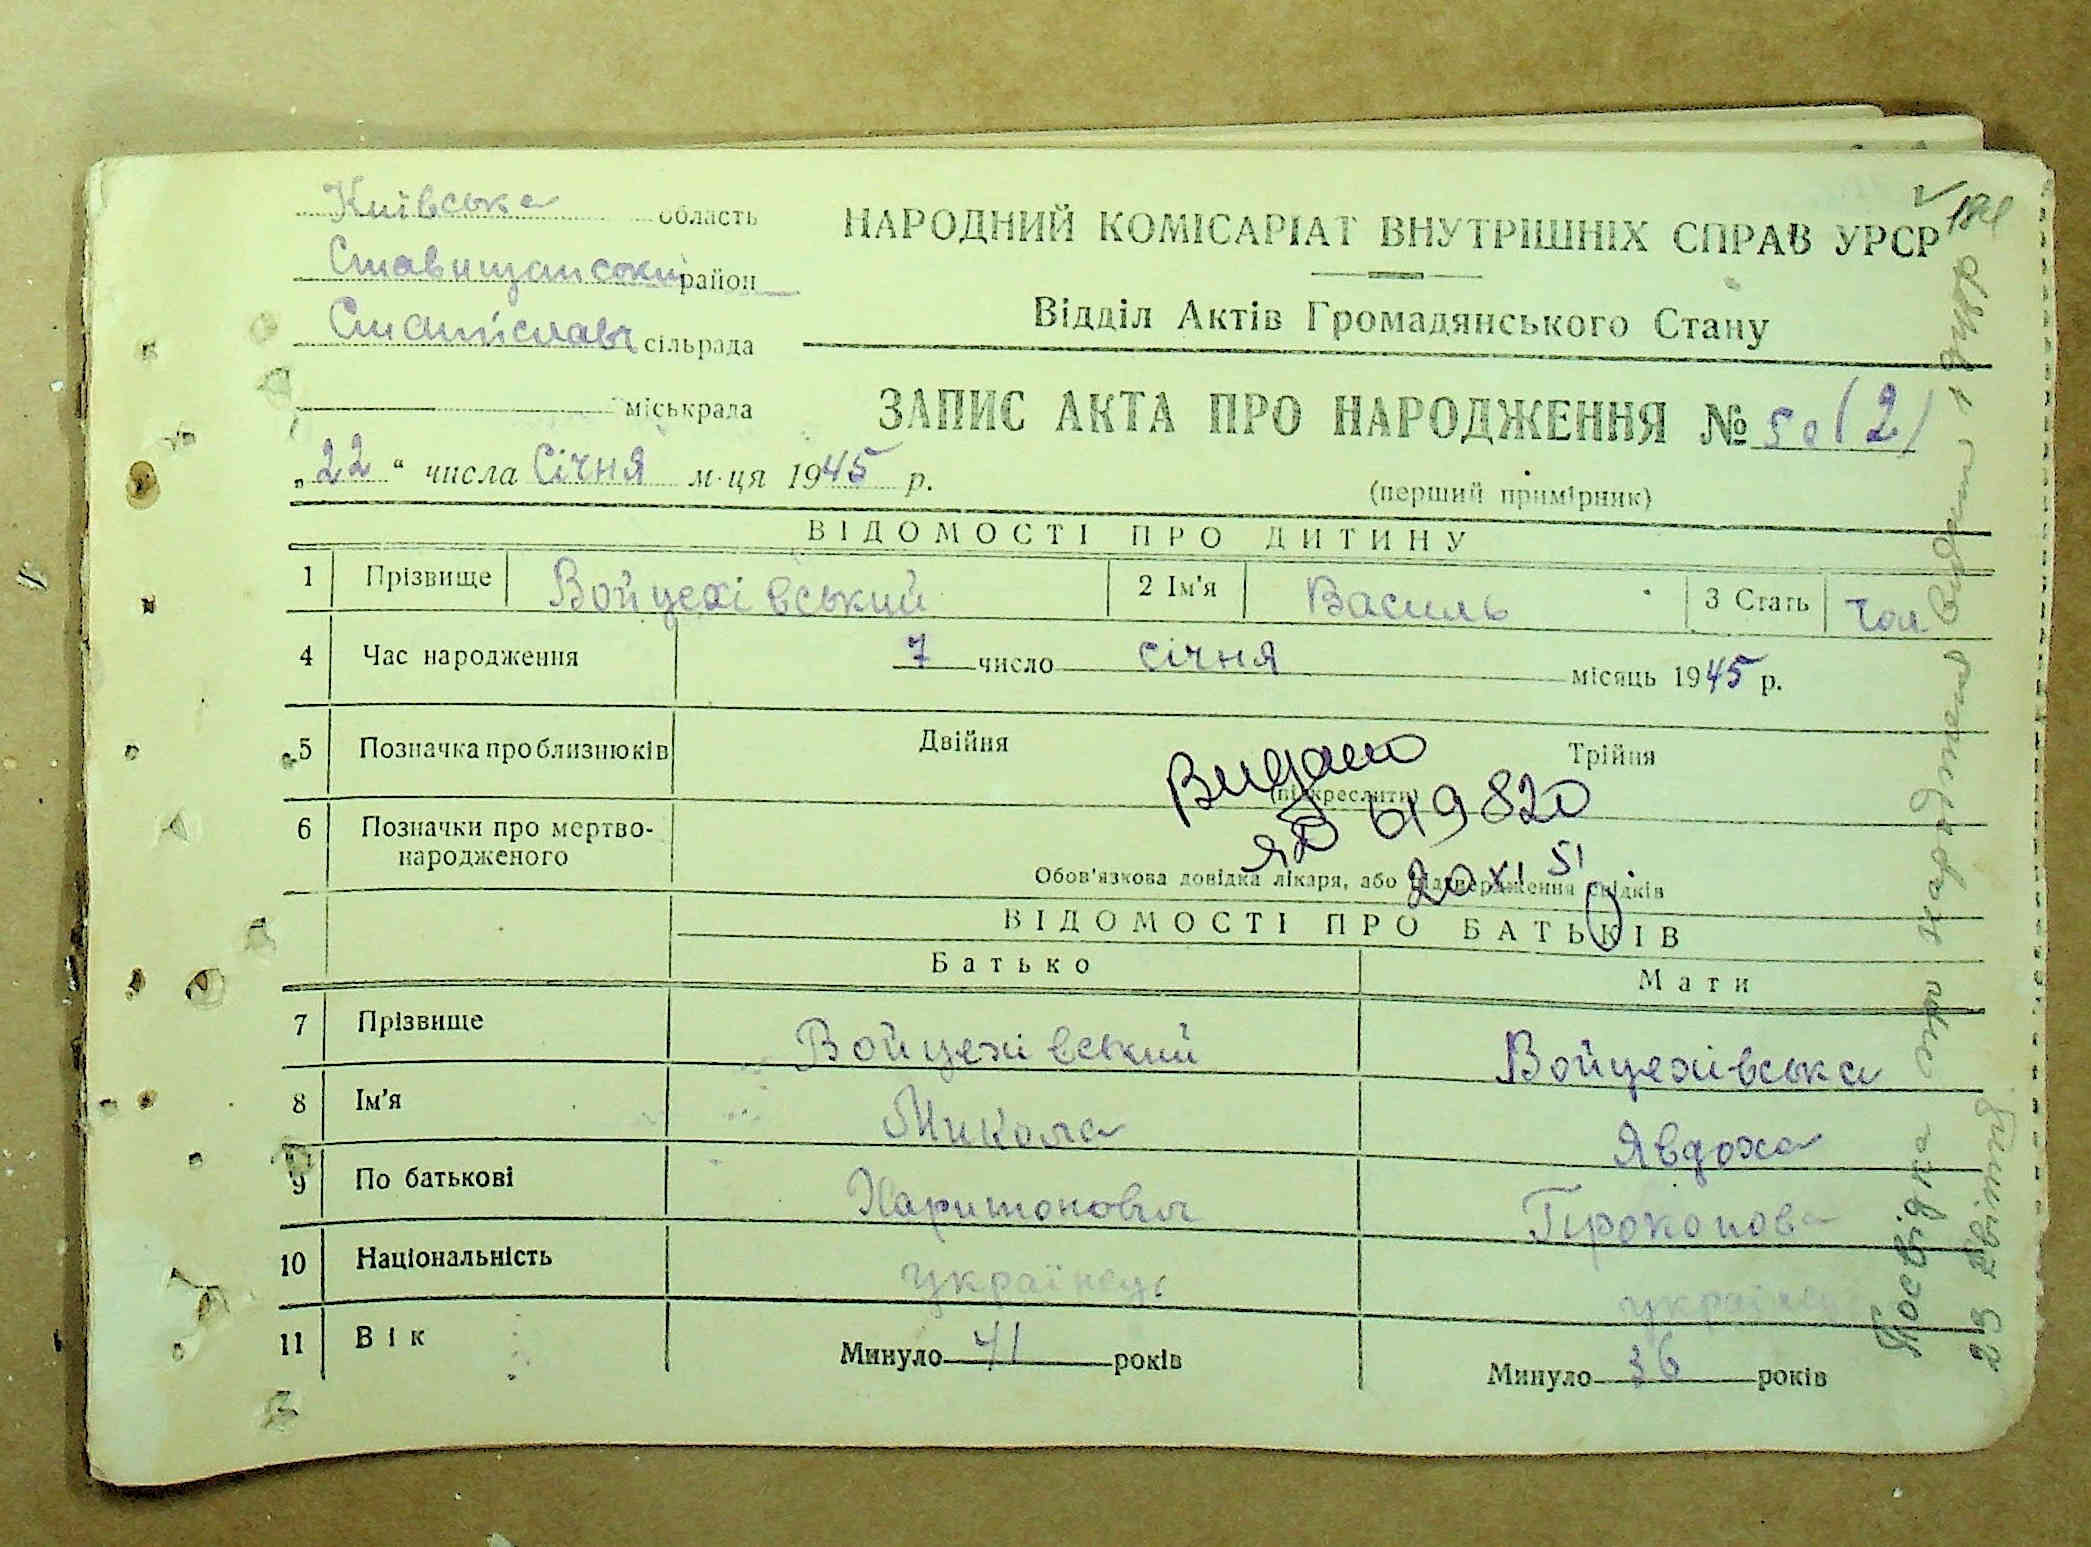 Київська область
Ставищанський район
Станіславч сільрада
міськрада
НАРОДНИЙ КОМІСАРІАТ ВНУТРІШНІХ СПРАВ УРСР
Відділ Актів Громадянського Стану
ЗАПИС АКТА ПРО НАРОДЖЕННЯ № 50(2)
„22“ числа Січня м-ця 1945 р.
(перший примірник)
ВІДОМОСТІ ПРО ДИТИНУ
1 Прізвище Войцехівський 2 Ім'я Василь 3 Стать чол
4 Час народження 7 число січня місяць 1945 р.
5 Позначка про близнюків Двійня Трійня
(підкреслити)
Видано
ЯД 619820
20 XI 51
6 Позначки про мертво-
народженого
Обов'язкова довідка лікаря, або підтвердження свідків
ВІДОМОСТІ ПРО БАТЬКІВ
Батько Мати
7 Прізвище Войцехівський Войцехівська
8 Ім'я Микола Явдоха
9 По батькові Харитонович Прокопова
10 Національність українець українець
11 Вік Минуло 41 років Минуло 36 років
Посвідка про народження видана 1948р
23 квітня